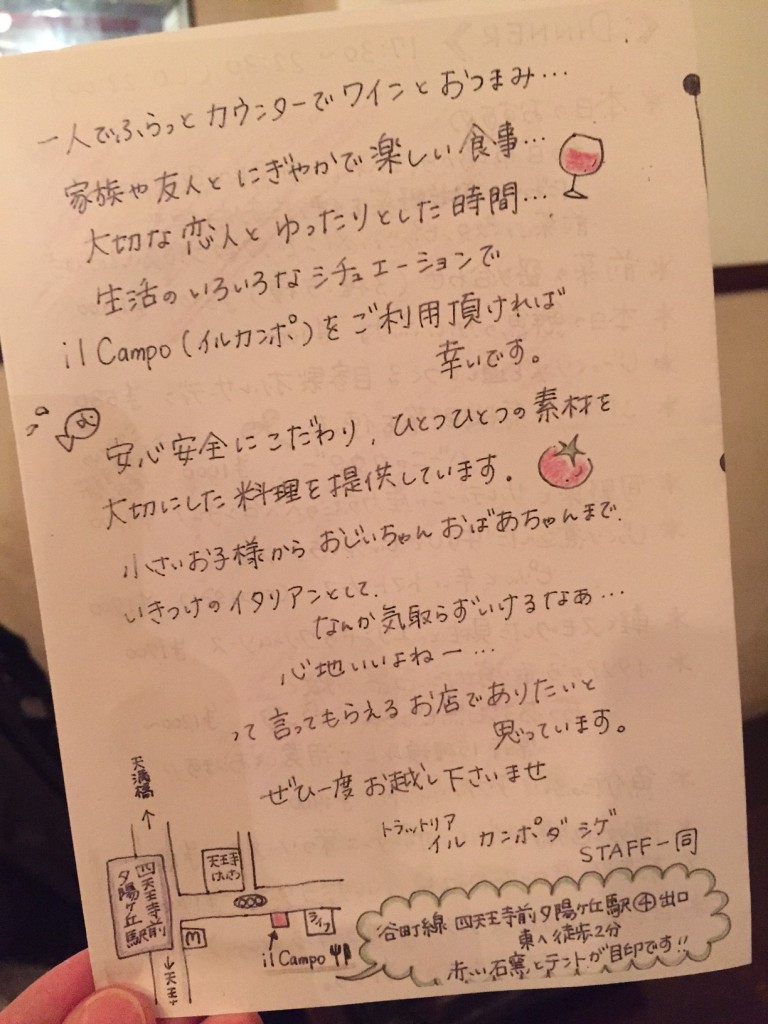 一人でふらっとカウンターでワインとおつまみ…
家族や友人とにぎやかで楽しい食事…
大切な恋人とゆったりとした時間…
生活のいろいろなシチュエーションで
il Campo(イルカンポ)をご利用頂ければ
幸いです。
安心安全にこだわり、ひとつひとつの素材を
大切にした料理を提供しています。
小さいお子様からおじいちゃんおばあちゃんまで、
いきつけのイタリアンとして、
なんか気取らずいけるなぁ…
心地いいよねー…
って言ってもらえるお店でありたいと
思っています。
ぜひ一度お越し下さいませ
トラットリア
イル カンポ ダ シゲ
STAFF一同
天満橋
四天王寺前
夕陽ヶ丘駅
天王寺
M
ライフ
il Campo
↓天王
谷町線 四天王寺前夕陽ヶ丘駅④出口
東へ徒歩2分
赤い石窯とテントが目印です!!